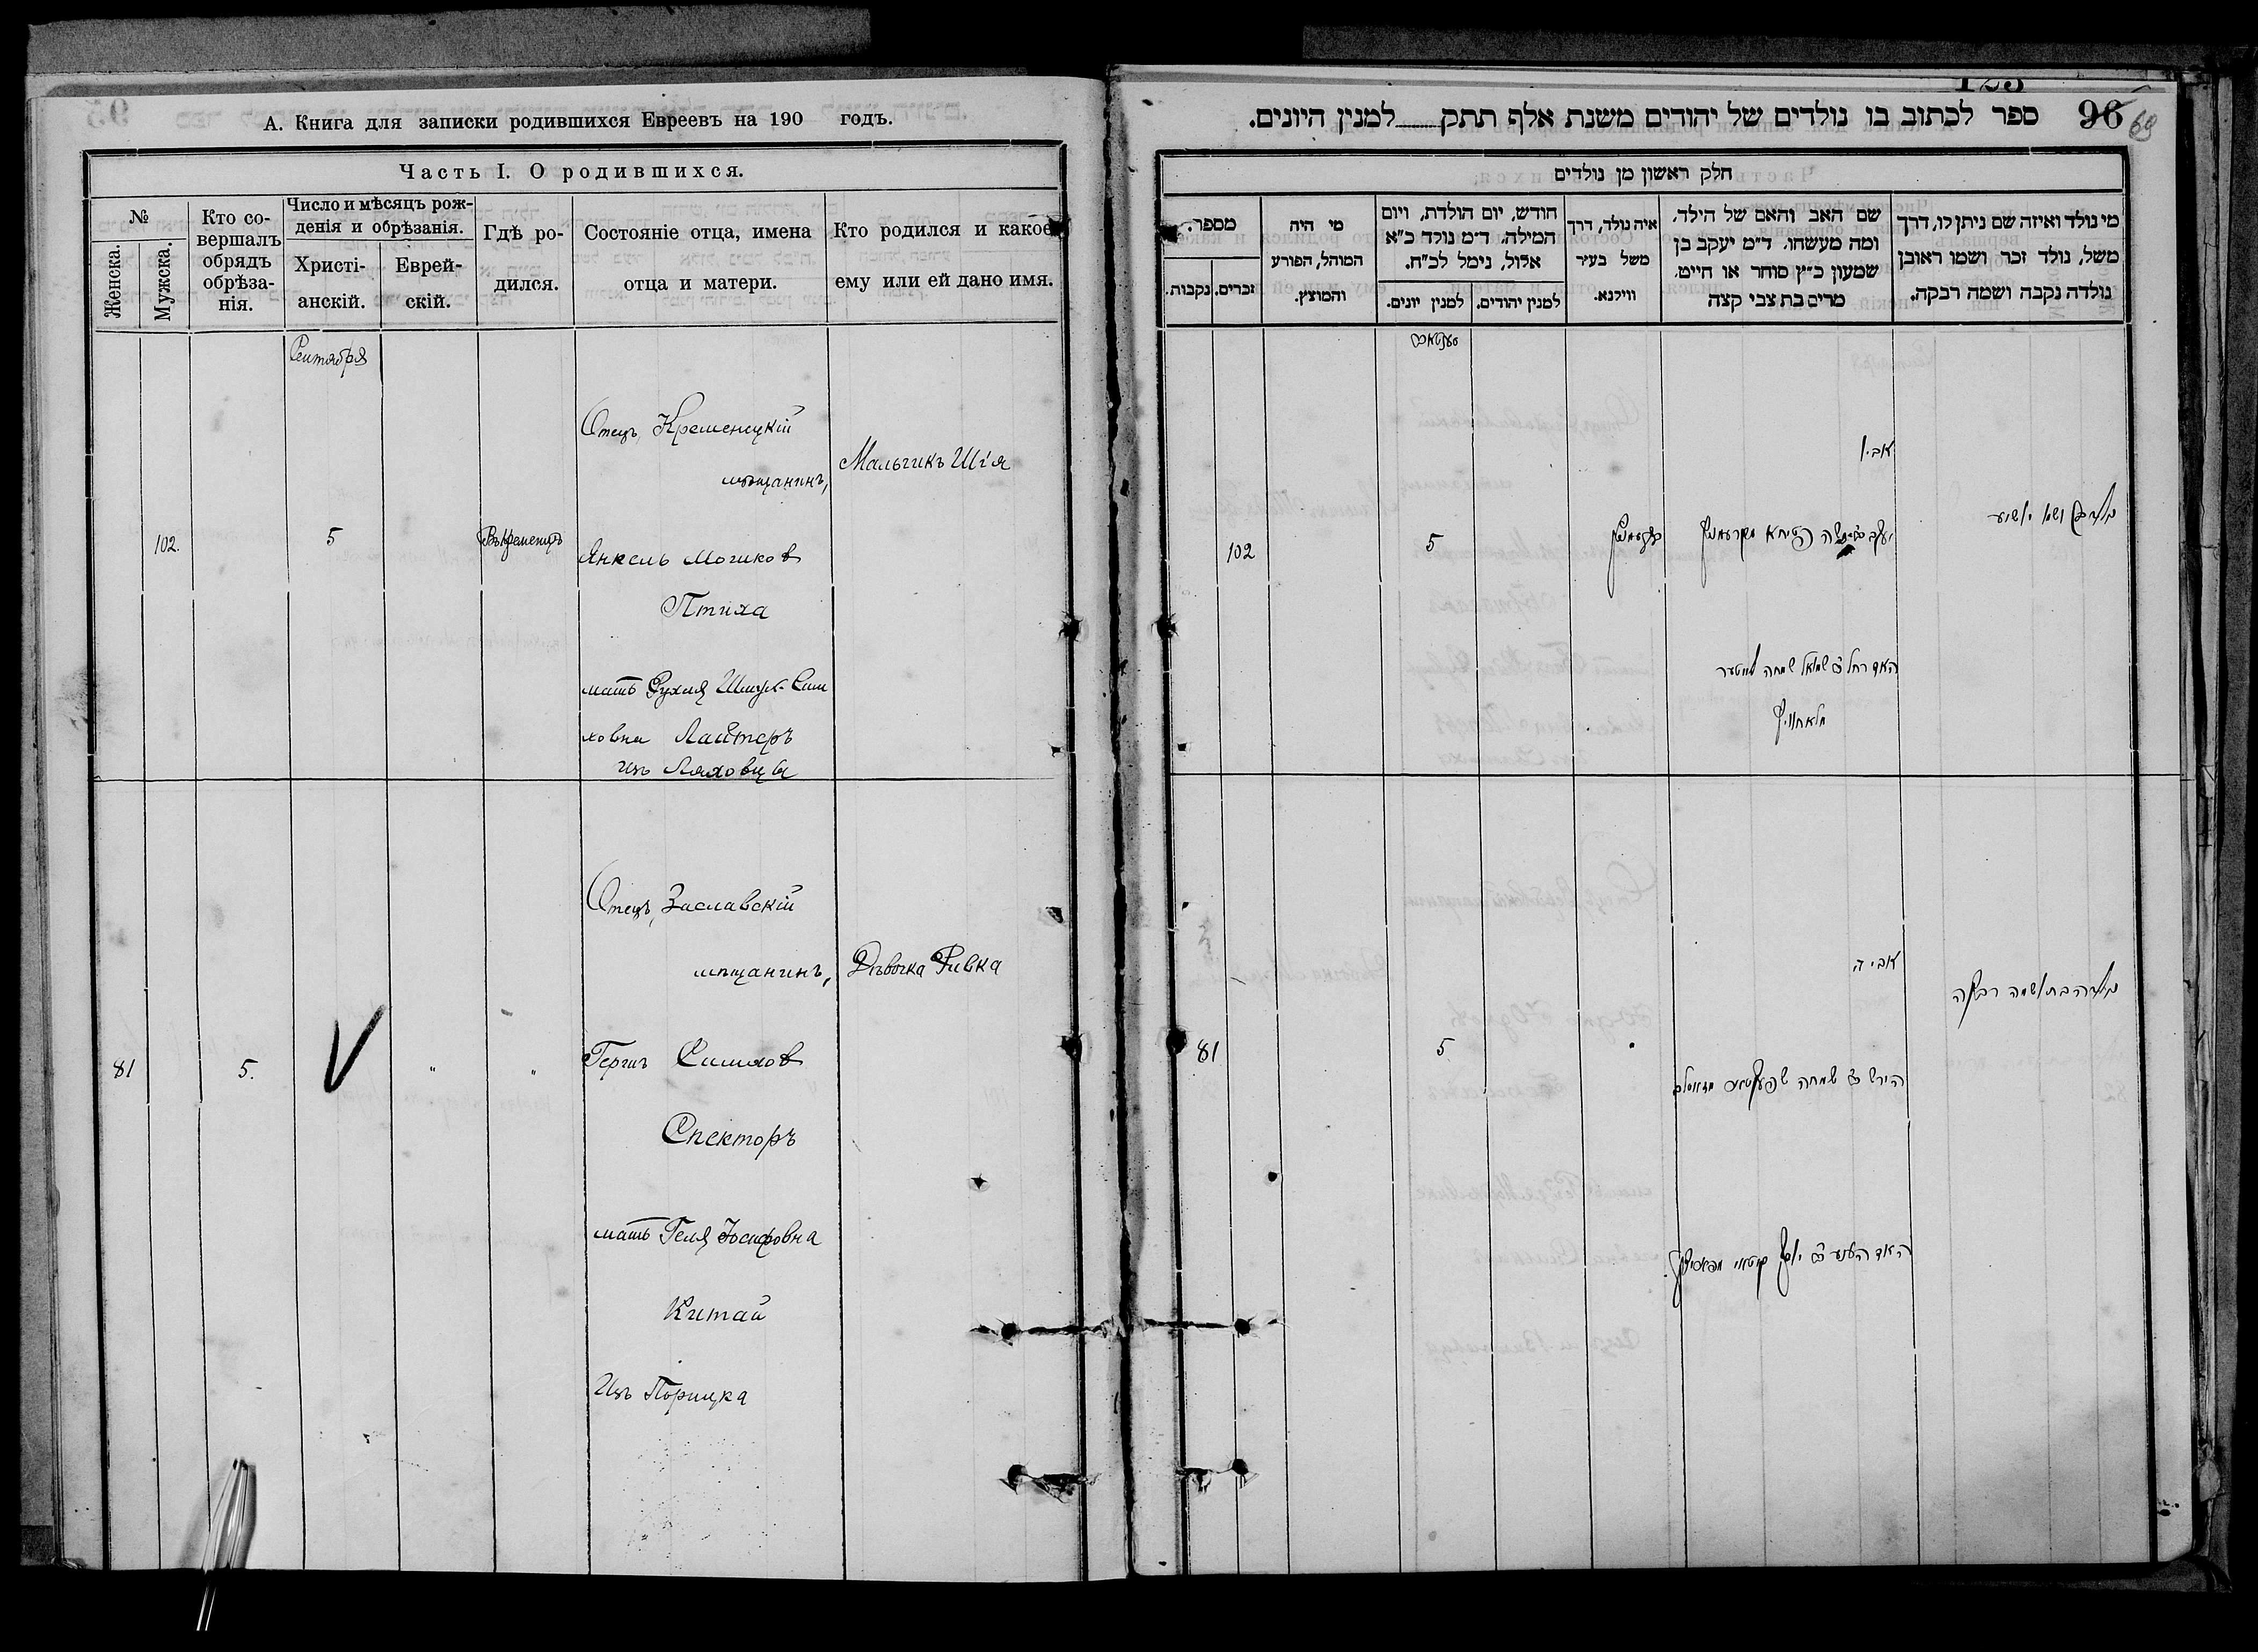 А. Книга для записки родившихся Евреевъ на 190 годъ.
Часть I. О родившихся.
№
Женска.
Мужска.
Кто со-
вершалъ
обрядъ
обрѣза-
нія.
Число и мѣсяцъ рож-
денія и обрѣзанія.
Христі-
анскій.
Еврей-
скій.
Гдѣ ро-
дился.
Состояніе отца, имена
отца и матери.
Кто родился и какое
ему или ей дано имя.
Сентября
102.
5
Въ Кременцѣ
Отецъ, Кременецкій
мѣщанинъ,
Янкель Мошков
Птиха
мать Рухля Шмул-Сим
ховна Лайтеръ
изъ Ляховцы
Мальчикъ Шія
81
5.
"
"
Отецъ, Заславскій
мѣщанинъ,
Гершъ Симхов
Спекторъ
мать Геня Іосифовна
Китай
Изъ Порицка
Дѣвочка Ривка
96
69
ספר לכתוב בו נולדים של יהודים משנת אלף תתק למנין היונים.
חלק ראשון מן נולדים
מי נולד ואיזה שם ניתן לו, דרך
משל, נולד זכר ושמו ראובן
נולדה נקבה ושמה רבקה.
שם האב והאם של הילד.
ומה מעשהו. ד״מ יעקב בן
שמעון כ״ץ סוחר או חייט.
מרים בת צבי קצה
איה נולד, דרך
משל בעיר
ווילנא.
חודש, יום הולדת, ויום
המילה. ד״מ נולד כ״א
אלול, נימל לכ״ח.
למנין יהודים.
למנין יונים.
מי היה
המוהל, הפורע
והמוצץ.
מספר.
זכרים.
נקבות.
סענטאב
אביו
ושמו יושיע
קרעמניץ
5
102
האם רחל ב״ש שמואל שמחה לייטער
מלאחוויץ
אביה
נולדה בת ושמה רבקה
5
81
הירש ב״ר שמחה שפעקטאר
האם הענע ב״ר יוסף קיטאי